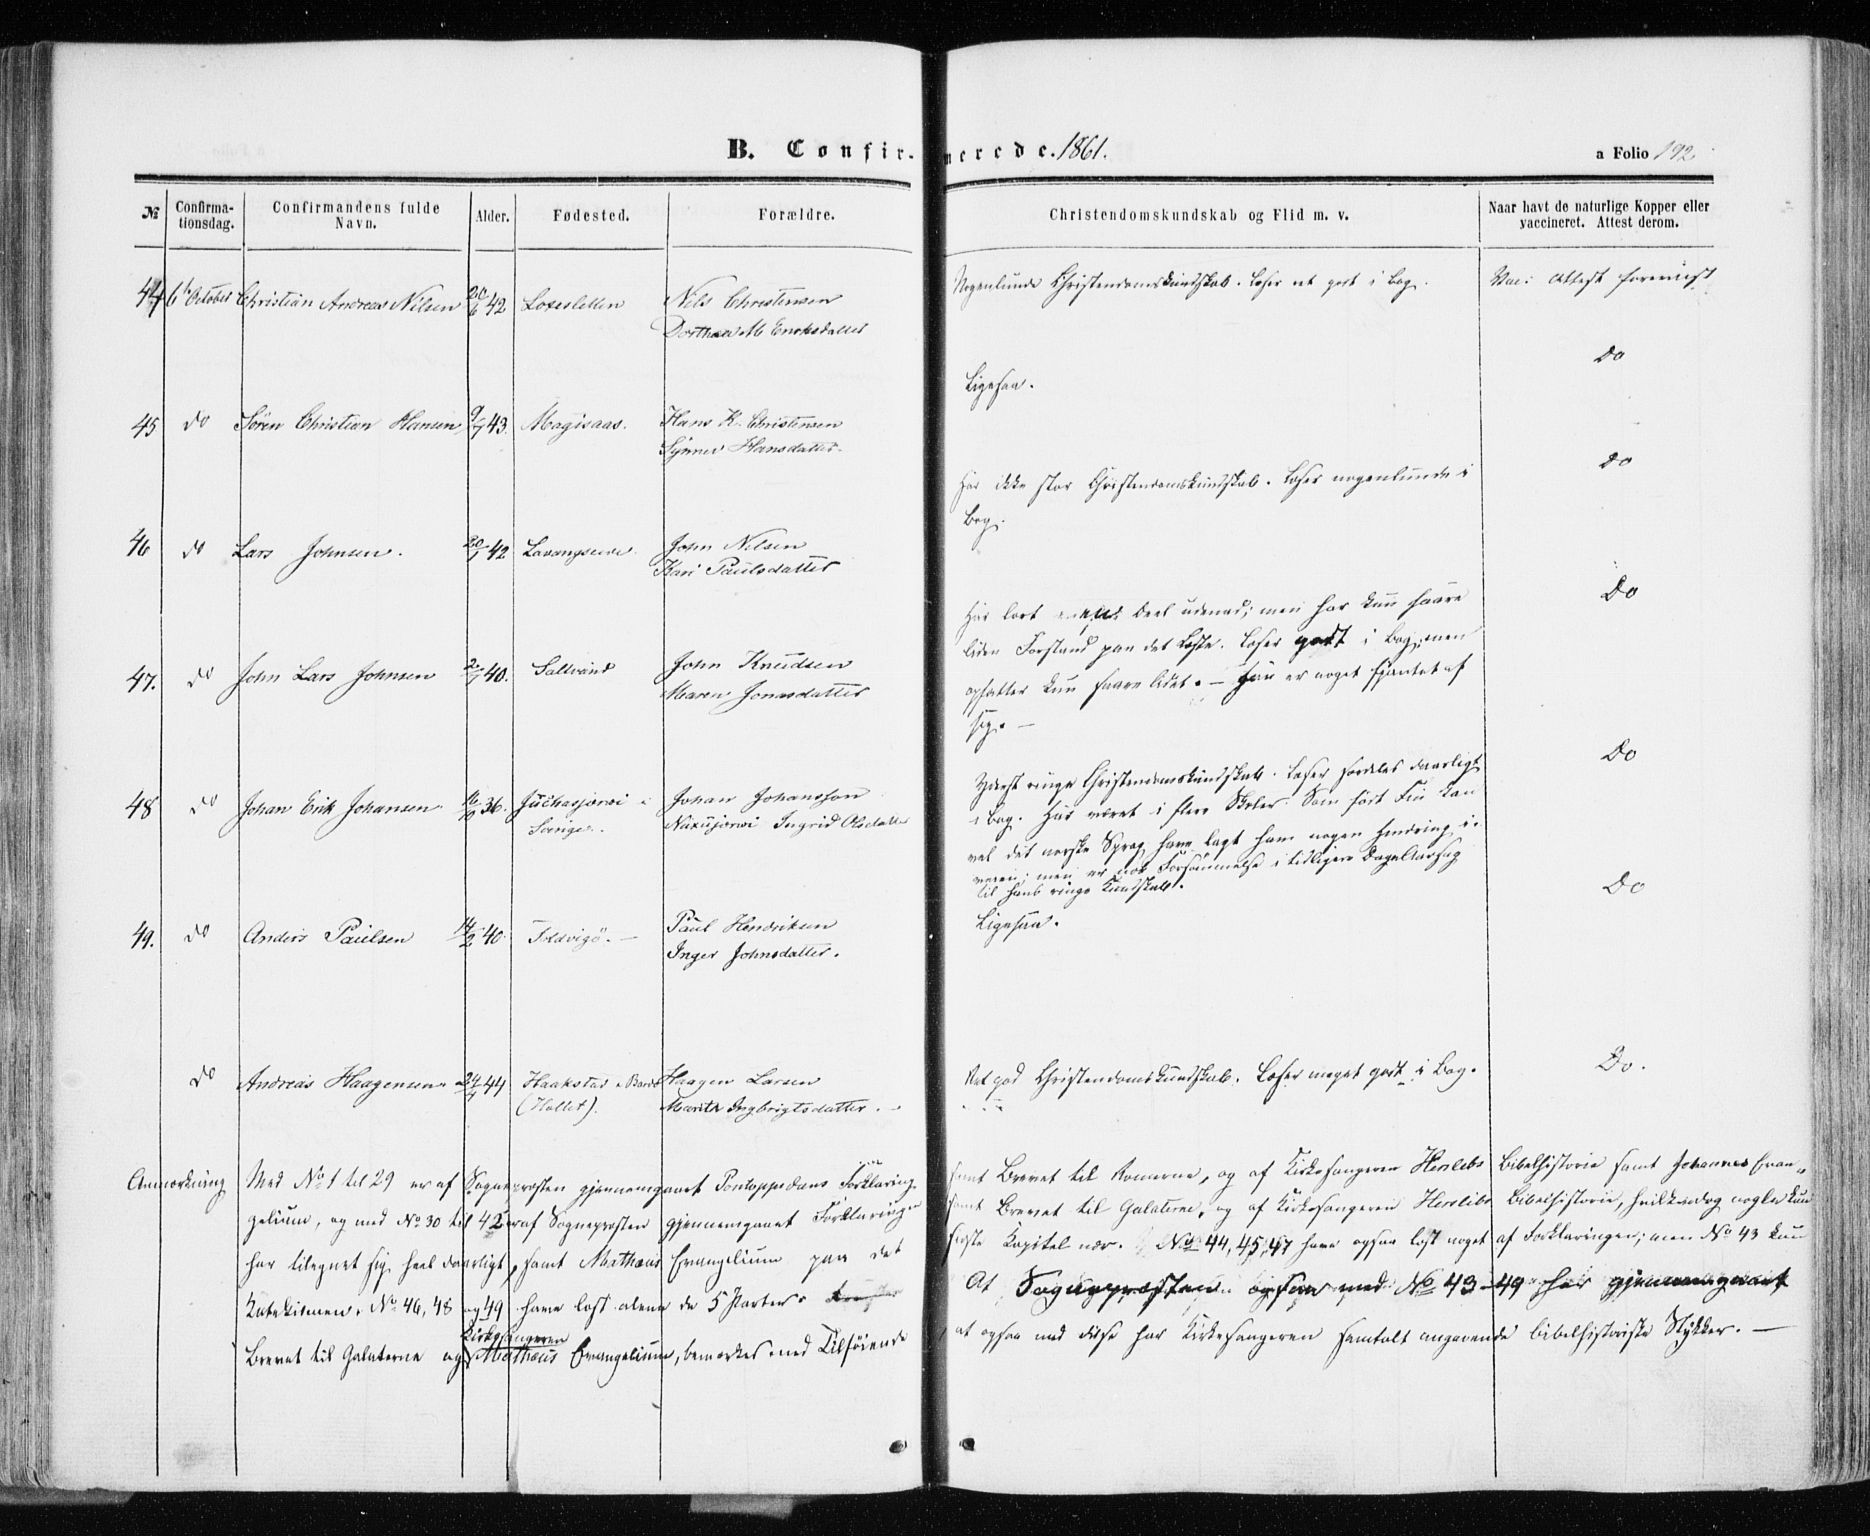 B. Confirmerede. 1861.
a Folio 192
№ Confirmationsdag. Confirmandens fulde Navn. Alder. Fødested. Forældre. Christendomskundskab og Flid m. v. Naar havt de naturlige Kopper eller vaccineret. Attest derom.
44 6te October Christian Andreas Nilsen 20/6 42 Nils Christensen Nogenlunde Christendomskundskab. Læser ret godt i Bog. Vac: Attest foreviist
Dorthea M Enoksdatter
Do
Ligesaa.
45 do Søren Christian Hansen 9/7 43. Magisaas. Hans K. Christensen
Synnev Hansdatter.
Do
Har ikke stor Christendomskundskab. Læser nogenlunde i
Bog.
46 do Lars Johnsen. 20/1 42 John Nilsen
Kari Paulsdatter
Do
Har lært Deel udenad; men har kun saare
liden Forstand paa det Læste. Læser godt i Bog, men
47. do John Lars Johnsen 40. Saltvand John Knudsen
Maren Jonasdatter
opfatter kun saare lidet. — Han er noget fjantet af
sig. —
Do
Yderst ringe Christendomskundskab. Læser saare daarligt
48 do Johan Erik Johansen 36. Juckasjervi i Johan Johansson
Sverige. Ingrid Olsdatter
i Bog. Har været i flere Skoler. Som født Fin kan
vel det norske Sprog have lagt ham nogen Hindring i
veien; men er nok Forsømmelse i tidligere Dage Aarsag
til hans ringe Kundskab.
Do
49. do Anders Paulsen 14/2 40 Paul Hendriksen Ligesaa.
Inger Johnsdatter.
do Andreas Haagensen 44 Haakstad i Bardo Haagen Larsen Ret god Christendomskundskab. Læser meget godt i Bog. Do.
Marith Ingbrigtsdatter.
Anmærkning Med No 1 til 29 er af Sognepræsten gjennemgaaet Pontoppidans Forklaring samt Brevet til Romerne, og af Kirkesangeren Herslebs Bibelhistorie samt Johannes Evan-
gelium, og med No 30 til 42 er af Sognepræsten gjennemgaaet Forklaringen samt Brevet til Galaterne, og af Kirkesangeren Herslebs Bibelhistorie, hvilken dog nogle kun
har tilegnet sig heel daarligt, samt Mathæus Evangelium paa det sidste Kapitel nær. No 44, 45, 47 have ogsaa læst noget af Forklaringen; men No 43 kun
Katekismen. No 46, 48 og 49 have læst alene de 5 Parter. At Sognepræsten ogsaa med No 43-49 har gjennemgaaet
Kirkesangeren
Brevet til Galaterne og Mathæus Evangelium, bemærkes med Tilføiende at ogsaa med disse har Kirkesangeren samtalt angaaende bibelhistoriske Stykker. —